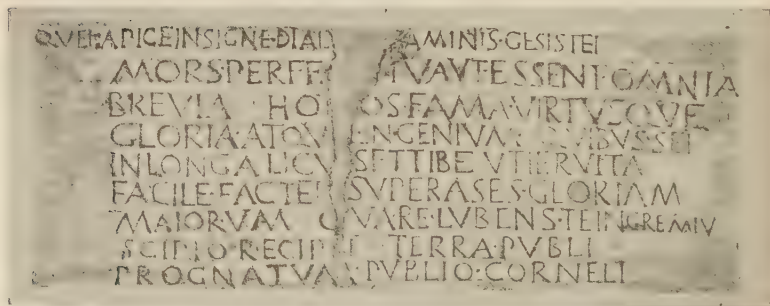 QVEI·APICE·INSIGNE·DIAL AMINIS·GESISTEI
MORS·PERFE TVA·VT·ESSENT·OMNIA
BREVIA HO OS·FAMA·VIRTVSQVE
GLORIA·ATQV INGENIVM QVIBVS·SEI
IN·LONGA·LICV SET·TIBE·VTIER·VITA
FACILE·FACTEI SVPERASES·GLORIAM
MAIORVM QVARE·LVBENS·TE·IN·GREMIV
SCIPIO·RECIPIT TERRA·PVBLI
PROGNATVM·PVBLIO·CORNELI